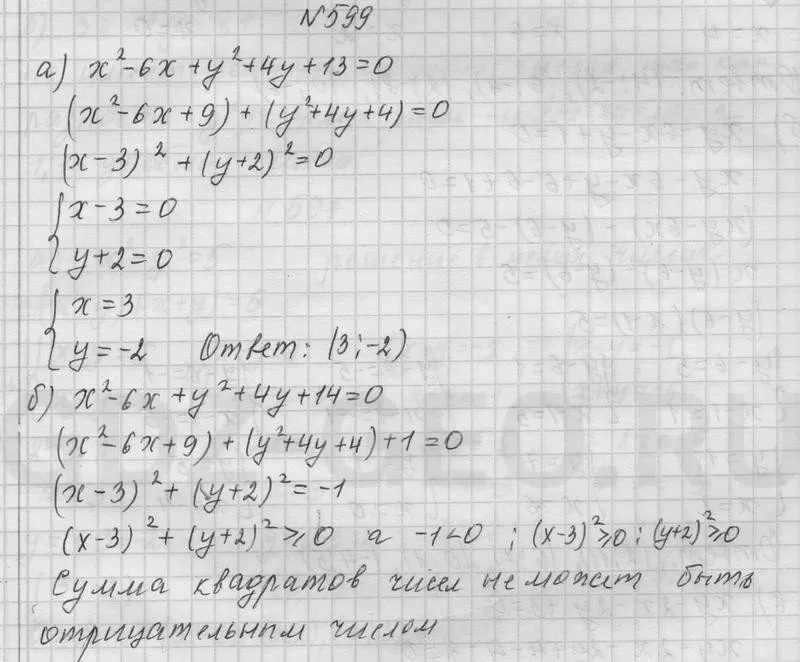 №599
а) x²-6x+y²+4y+13=0
(x²-6x+9)+(y²+4y+4)=0
(x-3)²+(y+2)²=0
{x-3=0
y+2=0
{x=3
y=-2 Ответ: (3;-2)
б) x²-6x+y²+4y+14=0
(x²-6x+9)+(y²+4y+4)+1=0
(x-3)²+(y+2)²=-1
(x-3)²+(y+2)²≥0 а -1<0 ; (x-3)²≥0; (y+2)²≥0
Сумма квадратов чисел не может быть
отрицательным числом